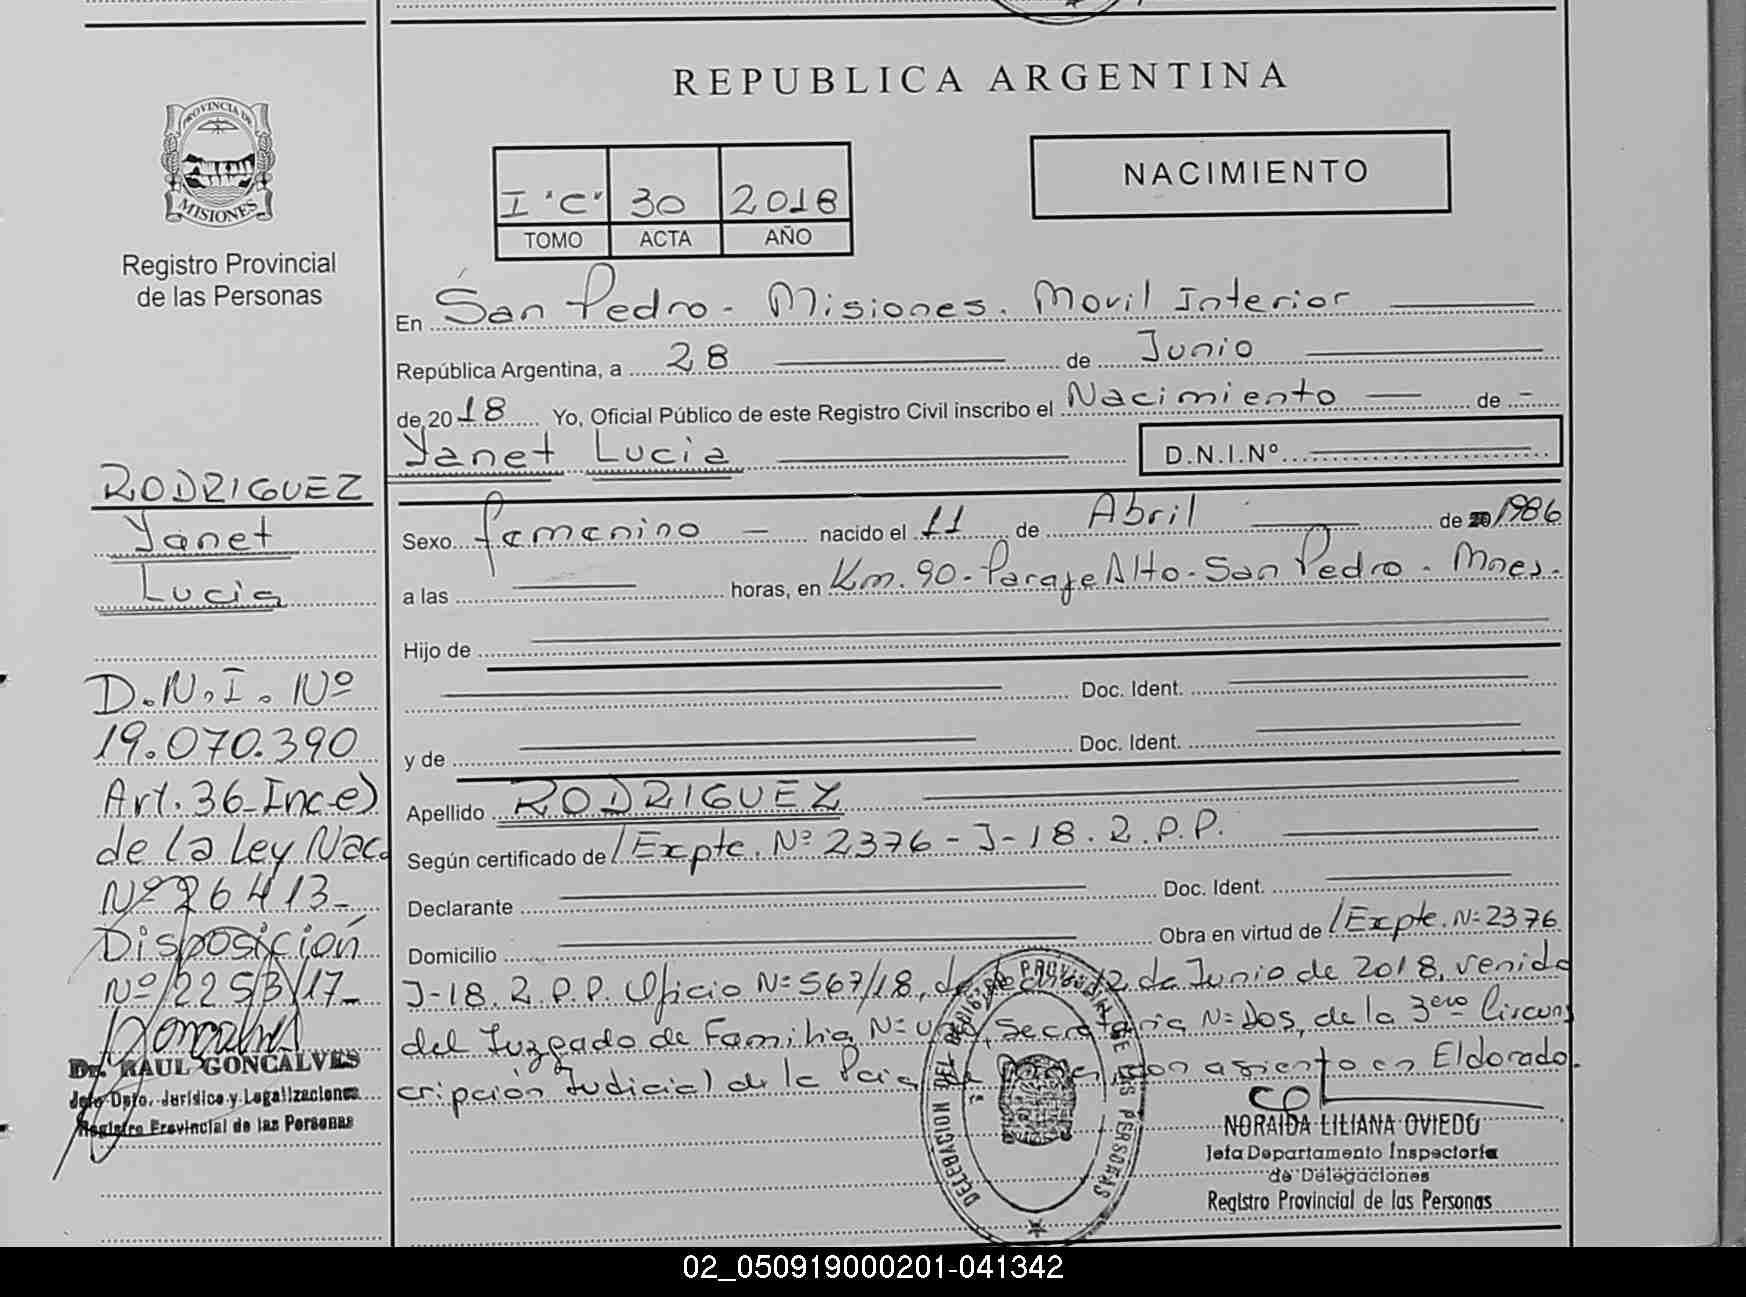 REPUBLICA ARGENTINA
PROVINCIA DE
MISIONES
Registro Provincial
de las Personas
I "C" 30 2018
TOMO ACTA AÑO
NACIMIENTO
En San Pedro - Misiones. Movil Interior
República Argentina, a 28 de Junio
de 2018 Yo, Oficial Público de este Registro Civil inscribo el Nacimiento de -
Yanet Lucia D.N.I.Nº
Sexo femenino nacido el 11 de Abril de 1986
a las horas, en Km. 90 - Paraje Alto - San Pedro - Mnes.
Hijo de
Doc. Ident.
y de Doc. Ident.
Apellido RODRIGUEZ
Según certificado de /Expte. Nº 2376 - J - 18. 2. P. P.
Declarante Doc. Ident.
Domicilio Obra en virtud de /Expte. Nº 2376
J-18. 2. P.P. Oficio Nº 567/18, de 12 de Junio de 2018, venido
del Juzgado de Familia Nº uno, Secretaria Nº Dos, de la 3era Circuns
cripción Judicial de la con asiento en Eldorado.
RODRIGUEZ
Yanet
Lucia
D.N.I. Nº
19.070.390
Art. 36 - Inc-e)
de la Ley Nac.
Nº 26413-
Disposición
Nº 2253/17-
Dr. RAUL GONCALVES
Jefe Dpto. Jurídico y Legalizaciones
Registro Provincial de las Personas
DELEGACION DEL REGISTRO PROVINCIAL DE LAS PERSONAS
NORAIDA LILIANA OVIEDO
Jefa Departamento Inspectoría
de Delegaciones
Registro Provincial de las Personas
02_050919000201-041342